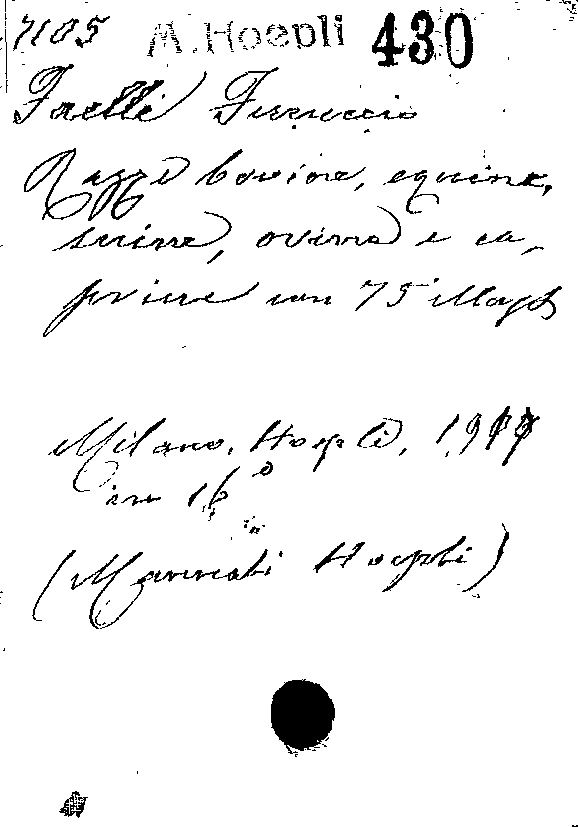 7105 M. Hoepli 430
Faelli Ferruccio
Razze bovine, equine,
suine, ovine e ca-
prine con 75
Milano, Hoepli,
in 16°
(Manuali Hoepli)